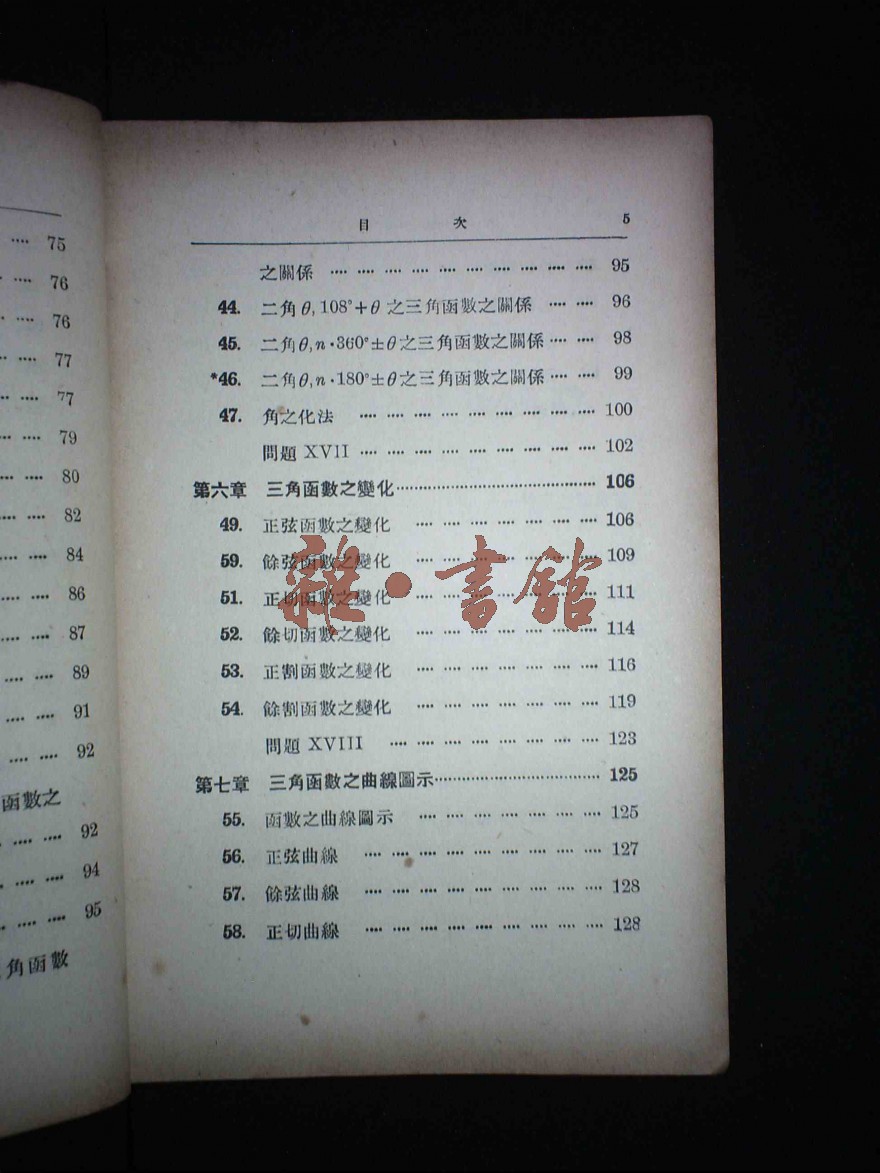 75
76
76
77
77
79
80
82
84
86
87
89
91
92
函數之
92
94
95
角函數
目 次 5
之關係 95
44. 二角θ, 108°+θ之三角函數之關係 96
45. 二角θ, n·360°±θ之三角函數之關係 98
*46. 二角θ, n·180°±θ之三角函數之關係 99
47. 角之化法 100
問題 XVII 102
第六章 三角函數之變化 106
49. 正弦函數之變化 106
59. 餘弦函數之變化 109
51. 正切函數之變化 111
52. 餘切函數之變化 114
53. 正割函數之變化 116
54. 餘割函數之變化 119
問題 XVIII 123
第七章 三角函數之曲線圖示 125
55. 函數之曲線圖示 125
56. 正弦曲線 127
57. 餘弦曲線 128
58. 正切曲線 128
雜·書館